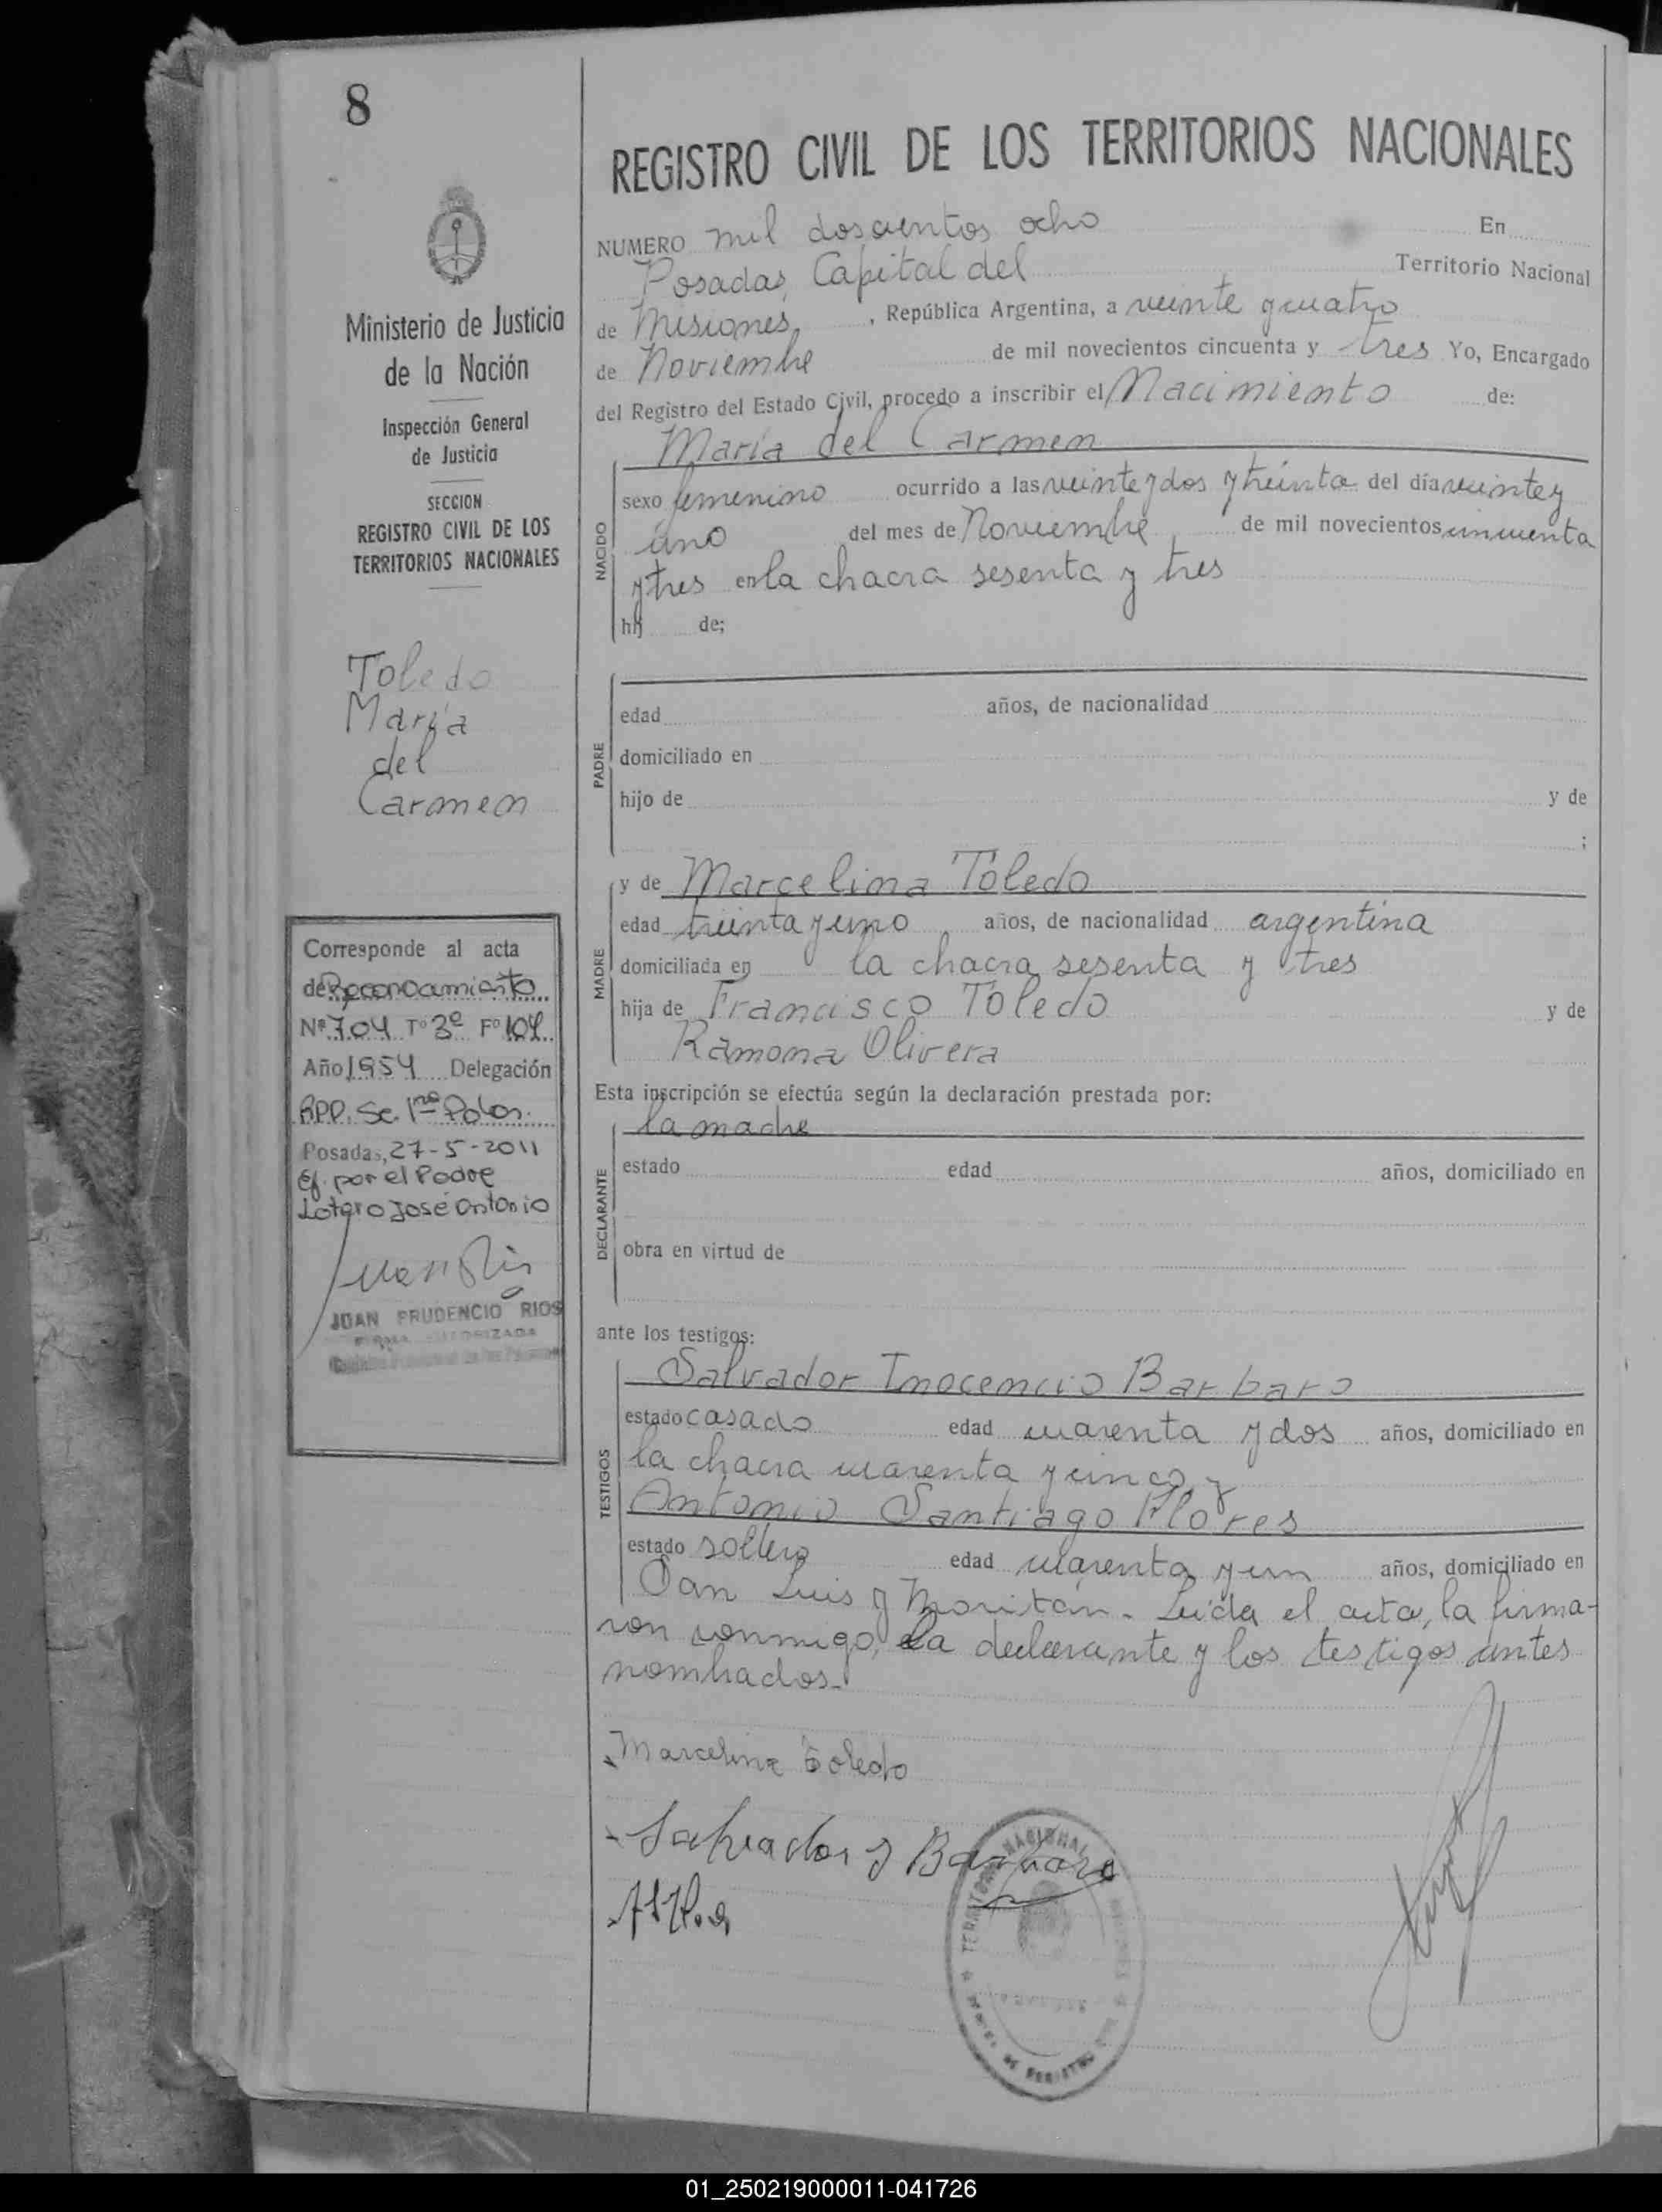 8
Ministerio de Justicia
de la Nación
Inspección General
de Justicia
SECCION
REGISTRO CIVIL DE LOS
TERRITORIOS NACIONALES
Toledo
María
del
Carmen
Corresponde al acta
de Reconocamiento
Nº 704 Tº 3º Fº 104
Año 1954 Delegación
Sc. 1ra
Posadas, 27-5-2011
Ef. por el Padre
José Antonio
JUAN PRUDENCIO RIOS
FIRMA AUTORIZADA
REGISTRO CIVIL DE LOS TERRITORIOS NACIONALES
NUMERO mil doscientos ocho En
Posadas, Capital del Territorio Nacional
de Misiones, , República Argentina, a veinte y cuatro
de Noviembre de mil novecientos cincuenta y tres Yo, Encargado
del Registro del Estado Civil, procedo a inscribir el Nacimiento de:
María del Carmen
NACIDO
sexo femenino ocurrido a las veinte y dos y treinta del día veinte y
uno del mes de Noviembre de mil novecientos cincuenta
y tres en la chacra sesenta y tres
hij de;
PADRE
edad años, de nacionalidad
domiciliado en
hijo de y de
;
MADRE
y de Marcelina Toledo
edad treinta y uno años, de nacionalidad argentina
domiciliada en la chacra sesenta y tres
hija de Francisco Toledo y de
Ramona Olivera
Esta inscripción se efectúa según la declaración prestada por:
DECLARANTE
la madre
estado edad años, domiciliado en
obra en virtud de
ante los testigos:
TESTIGOS
Salvador Inocencio Barbaro
estado casado edad cuarenta y dos años, domiciliado en
la chacra cuarenta y cinco y
Antonio Santiago Flores
estado soltero edad cuarenta y un años, domiciliado en
San Luis y Moritán. Leída el acta, la firma-
ron conmigo, la declarante y los testigos antes
nombrados.
Marcelina Toledo
Salvador I Barbaro
TERRITORIO NACIONAL
DE REGISTRO
01_250219000011-041726